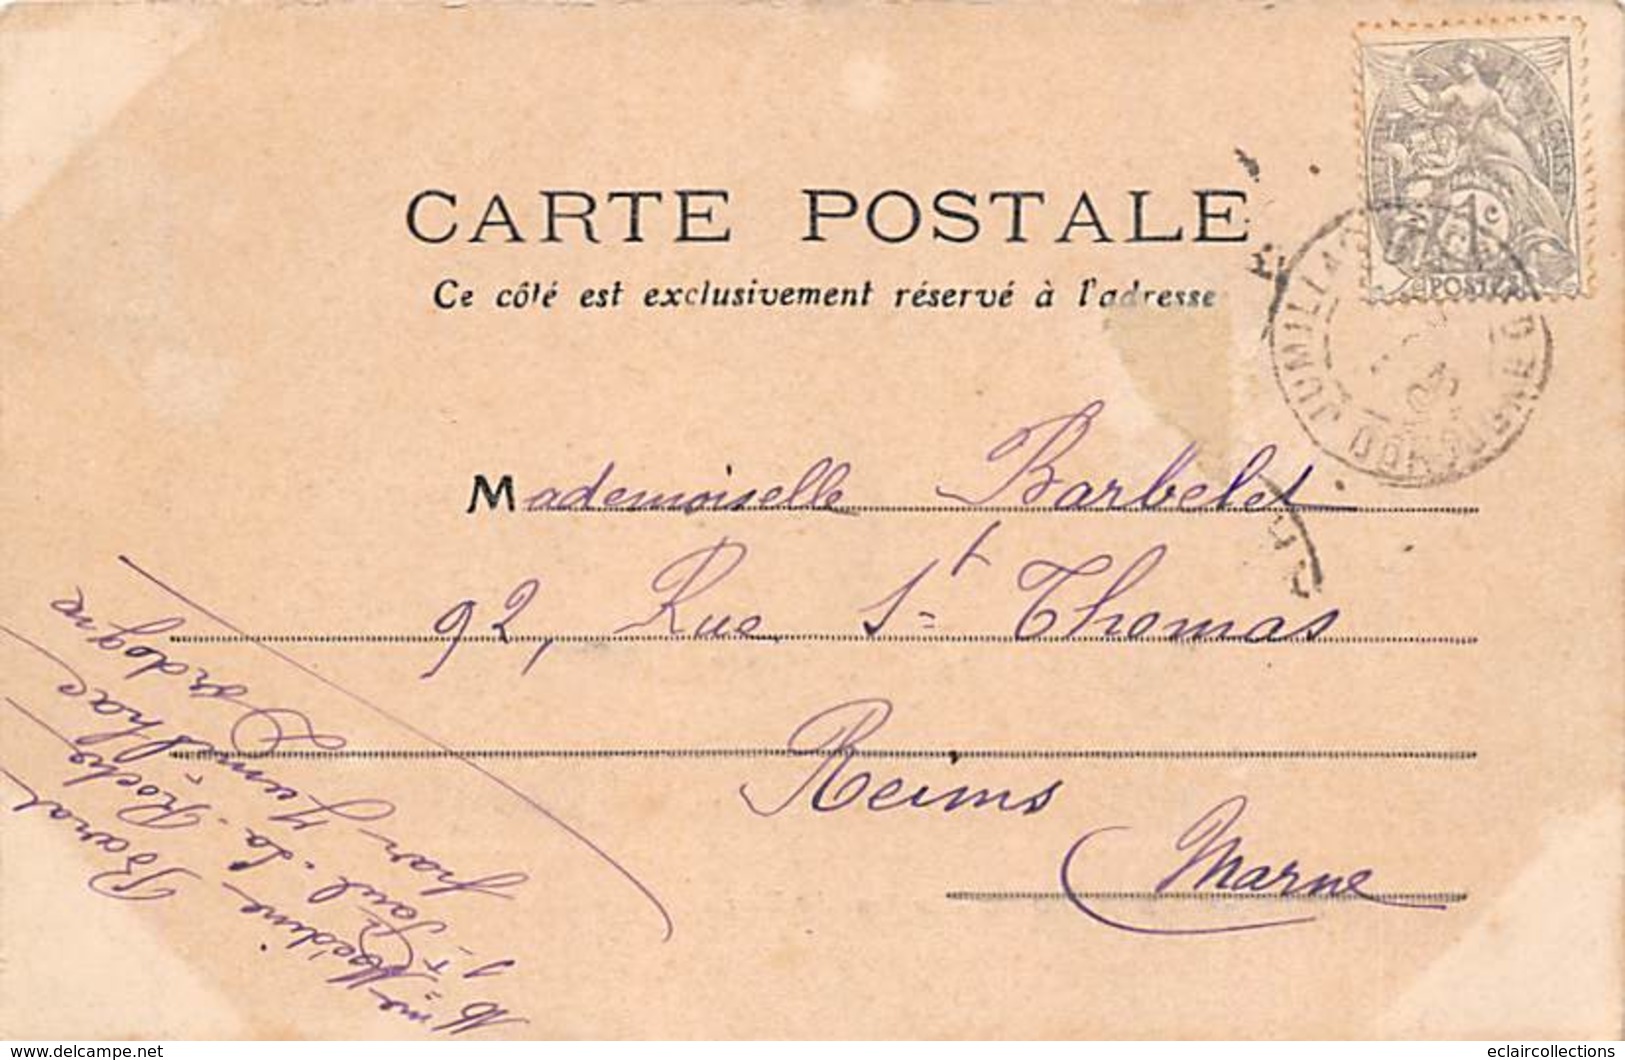 CARTE POSTALE
Ce côté est exclusivement réservé à l'adresse
Mademoiselle Barbelet
92, Rue St Thomas
Reims
Marne
POSTES
1c
JUMILLAC
DORDOGNE
03
Mme
Barat
St Paul-la-Roche
par Jumilhac
Dordogne
www.delcampe.net
eclaircollections